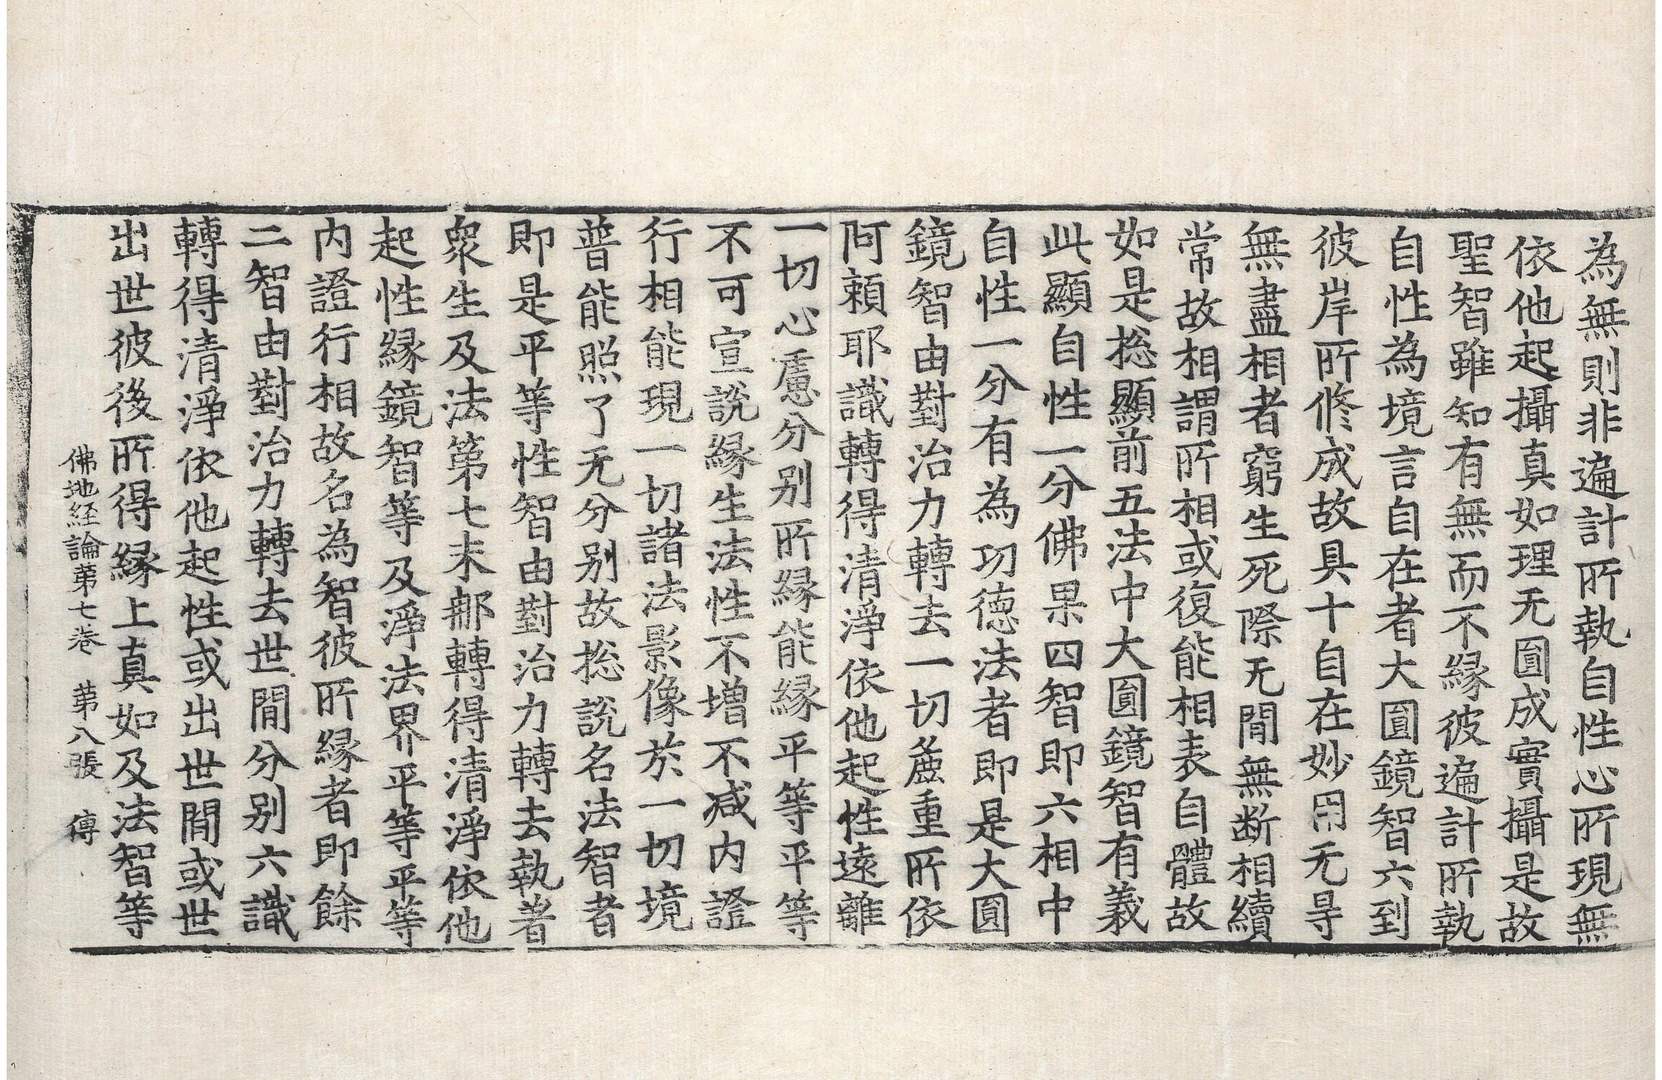 為無則非遍計所執自性心所現無
依他起攝真如理无圎成實攝是故
聖智雖知有無而不縁彼遍計所執
自性為境言自在者大圎鏡智六到
彼岸所修成故具十自在妙用无㝵
無盡相者窮生死際无閒無断相續
常故相謂所相或復能相表自體故
如是捴顯前五法中大圎鏡智有義
此顯自性一分佛果四智即六相中
自性一分有為功徳法者即是大圎
鏡智由對治力轉去一切麁重所依
阿頼耶識轉得清淨依他起性遠離
一切心慮分别所縁能縁平等平等
不可宣說縁生法性不増不减内證
行相能現一切諸法影像於一切境
普能照了无分别故捴說名法智者
即是平等性智由對治力轉去執著
衆生及法第七末那轉得清淨依他
起性縁鏡智等及淨法界平等平等
内證行相故名為智彼所縁者即餘
二智由對治力轉去世閒分别六識
轉得清淨依他起性或出世閒或世
出世彼後所得縁上真如及法智等
佛地経論第七巻 第八張 傳